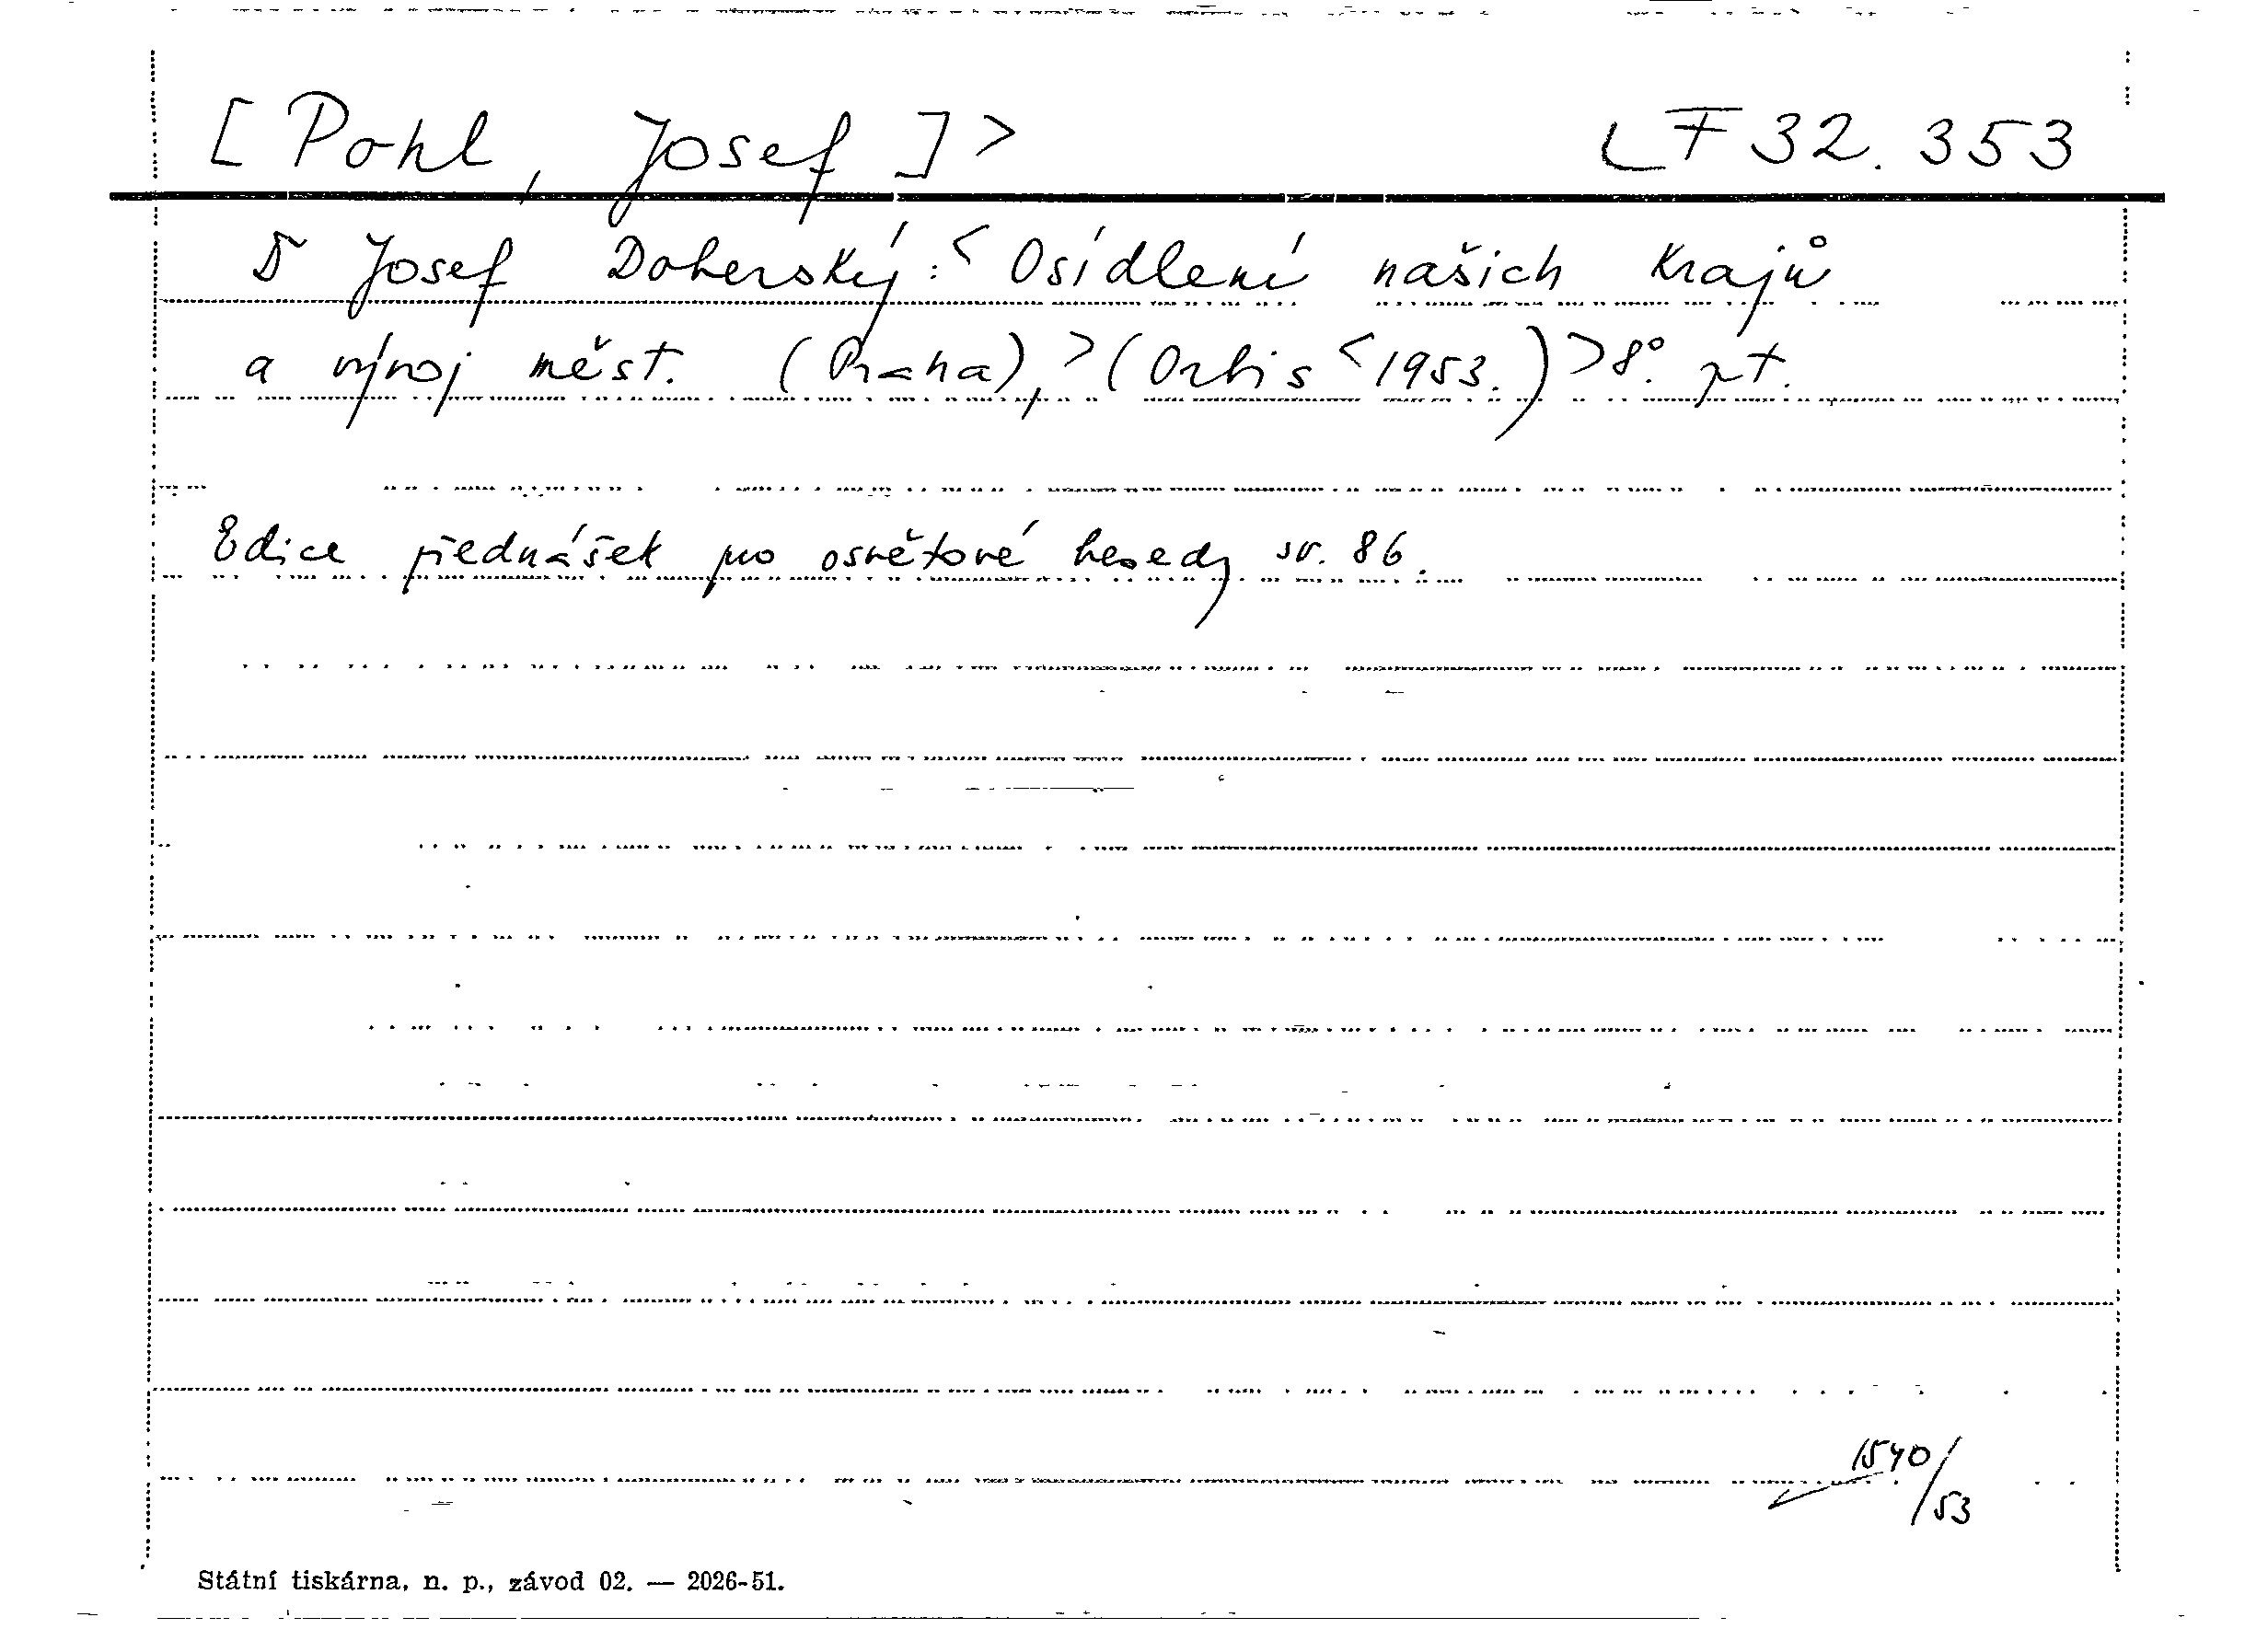 [Pohl, Josef]> LF 32.353
Josef Doberský:< Osídlení našich krajů
a vývoj měst. (Praha),>(Orbis <1953.)>8°. pt.
Edice přednášek pro osvětové besedy sv. 86.
1540/53
Státní tiskárna, n. p., závod 02. — 2026-51.